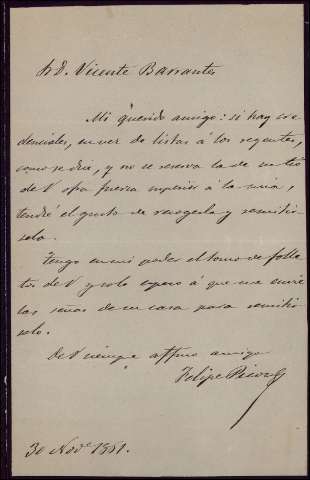 Sr D. Vicente Barrantes
Mi querido amigo: si hay cre
denciales, en vez de listas á los regentes,
como se dice, y no se reserva la de
de V otra fuerza superior á la mia,
tendré el gusto de recogerla y remitir
sela.
Tengo en mi poder el tomo de folle
tos de V y solo espero á que me envie
las señas de su casa para remitir
selo.
De V siempre affmo amigo
Felipe Picon
30 Nove 1881.